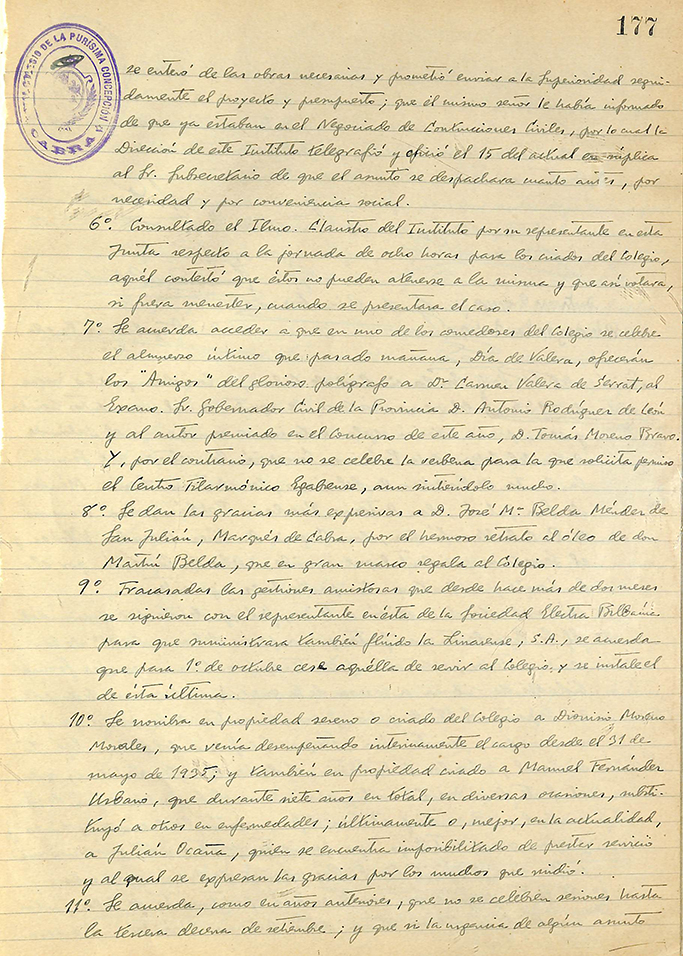 177
COLEGIO DE LA PURÍSIMA CONCEPCIÓN
CABRA
se enteró de las obras necesarias y prometió enviar a la Superioridad segui-
damente el proyecto y presupuesto; que el mismo señor le había informado
de que ya estaban en el Negociado de Contrucciones Civiles, por lo cual la
Dirección de este Instituto telegrafió y ofició el 15 del actual en súplica
al Sr. Subsecretario de que el asunto se despachara cuanto antes, por
necesidad y por conveniencia social.
6º. Consultado el Ilmo. Claustro del Instituto por su representante en esta
Junta respecto a la jornada de ocho horas para los criados del Colegio,
aquél contestó que éstos no pueden atenerse a la misma y que así votara,
si fuera menester, cuando se presentara el caso.
7º. Se acuerda acceder a que en uno de los comedores del Colegio se celebre
el almuerzo íntimo que pasado mañana, Día de Valera, ofrecerán
los "Amigos" del glorioso polígrafo a Dª. Carmen Valera de Serrat, al
Excmo. Sr. Gobernador Civil de la Provincia D. Antonio Rodríguez de León
y al autor premiado en el Concurso de este año, D. Tomás Moreno Bravo.
Y, por el contrario, que no se celebre la verbena para la que solicita permiso
el Centro Filarmónico Egabrense, aun sintiéndolo mucho.
8º. Se dan las gracias más expresivas a D. José Mª Belda Méndez de
San Julián, Marqués de Cabra, por el hermoso retrato al óleo de don
Martín Belda, que en gran marco regala al Colegio.
9º. Fracasadas las gestiones amistosas que desde hace más de dos meses
se siguieron con el representante en ésta de la Sociedad Electra Bilbaína
para que suministrara también flúido la Linarense, S.A., se acuerda
que para 1º de octubre cese aquélla de servir al Colegio y se instale el
de ésta última.
10º. Se nombra en propiedad sereno o criado del Colegio a Dionisio Moreno
Morales, que venía desempeñando interinamente el cargo desde el 31 de
mayo de 1935; y también en propiedad criado a Manuel Fernández
Urbano, que durante siete años en total, en diversas ocasiones, substi-
tuyó a otros en enfermedades; últimamente o, mejor, en la actualidad,
a Julián Ocaña, quien se encuentra imposibilitado de prestar servicio
y al qual se expresan las gracias por los muchos que rindió.
11º. Se acuerda, como en años anteriores, que no se celebren sesiones hasta
la tercera decena de setiembre; y que si la urgencia de algún asunto